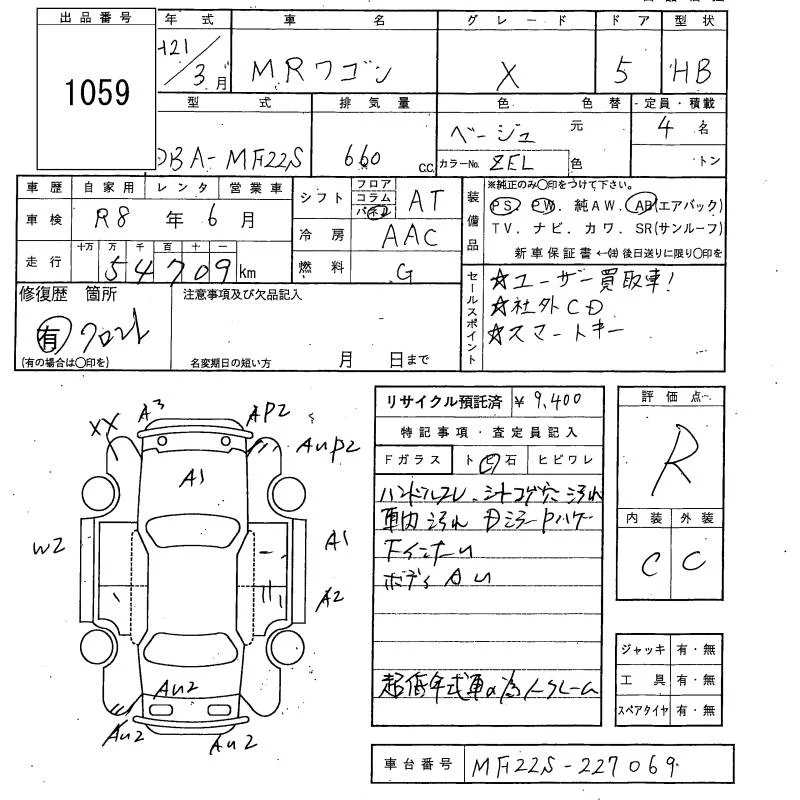 出品番号
1059
年 式
H21/3月
車 名
MRワゴン
グレード
X
ドア
5
型状
HB
型 式
DBA-MF22S
排気量
660 c.c.
色 色替
ベージュ 元
カラーNo. ZEL 色
定員・積載
4 名
トン
車歴 自家用 レンタ 営業車
車検 R8 年 6 月
走行 十万 万 千 百 十 一
54709 km
シフト フロア コラム パネ AT
冷房 AAC
燃料 G
装備品
※純正のみ○印をつけて下さい。
PS. PW. 純AW. AB(エアバック)
TV. ナビ. カワ. SR(サンルーフ)
新車保証書←㈲後日送りに限り○印を
修復歴 箇所
有
(有の場合は○印を)
注意事項及び欠品記入
名変期日の短い方 月 日まで
セールスポイント
☆ユーザー買取車!
☆社外CD
☆スマートキー
A3
AP2
XX
AuP2
A1
W2
A1
A2
Au2
Au2
Au2
リサイクル預託済 ¥9,400
特記事項・査定員記入
Fガラス ト 石 ヒビワレ
ハンドルスレ シートコゲ穴 汚れ
車内汚れ Dミラー Pハゲ
ボディAU
超低年式車の為ノークレーム
評価点
R
内装 外装
C C
ジャッキ 有・無
工具 有・無
スペアタイヤ 有・無
車台番号 MF22S-227069